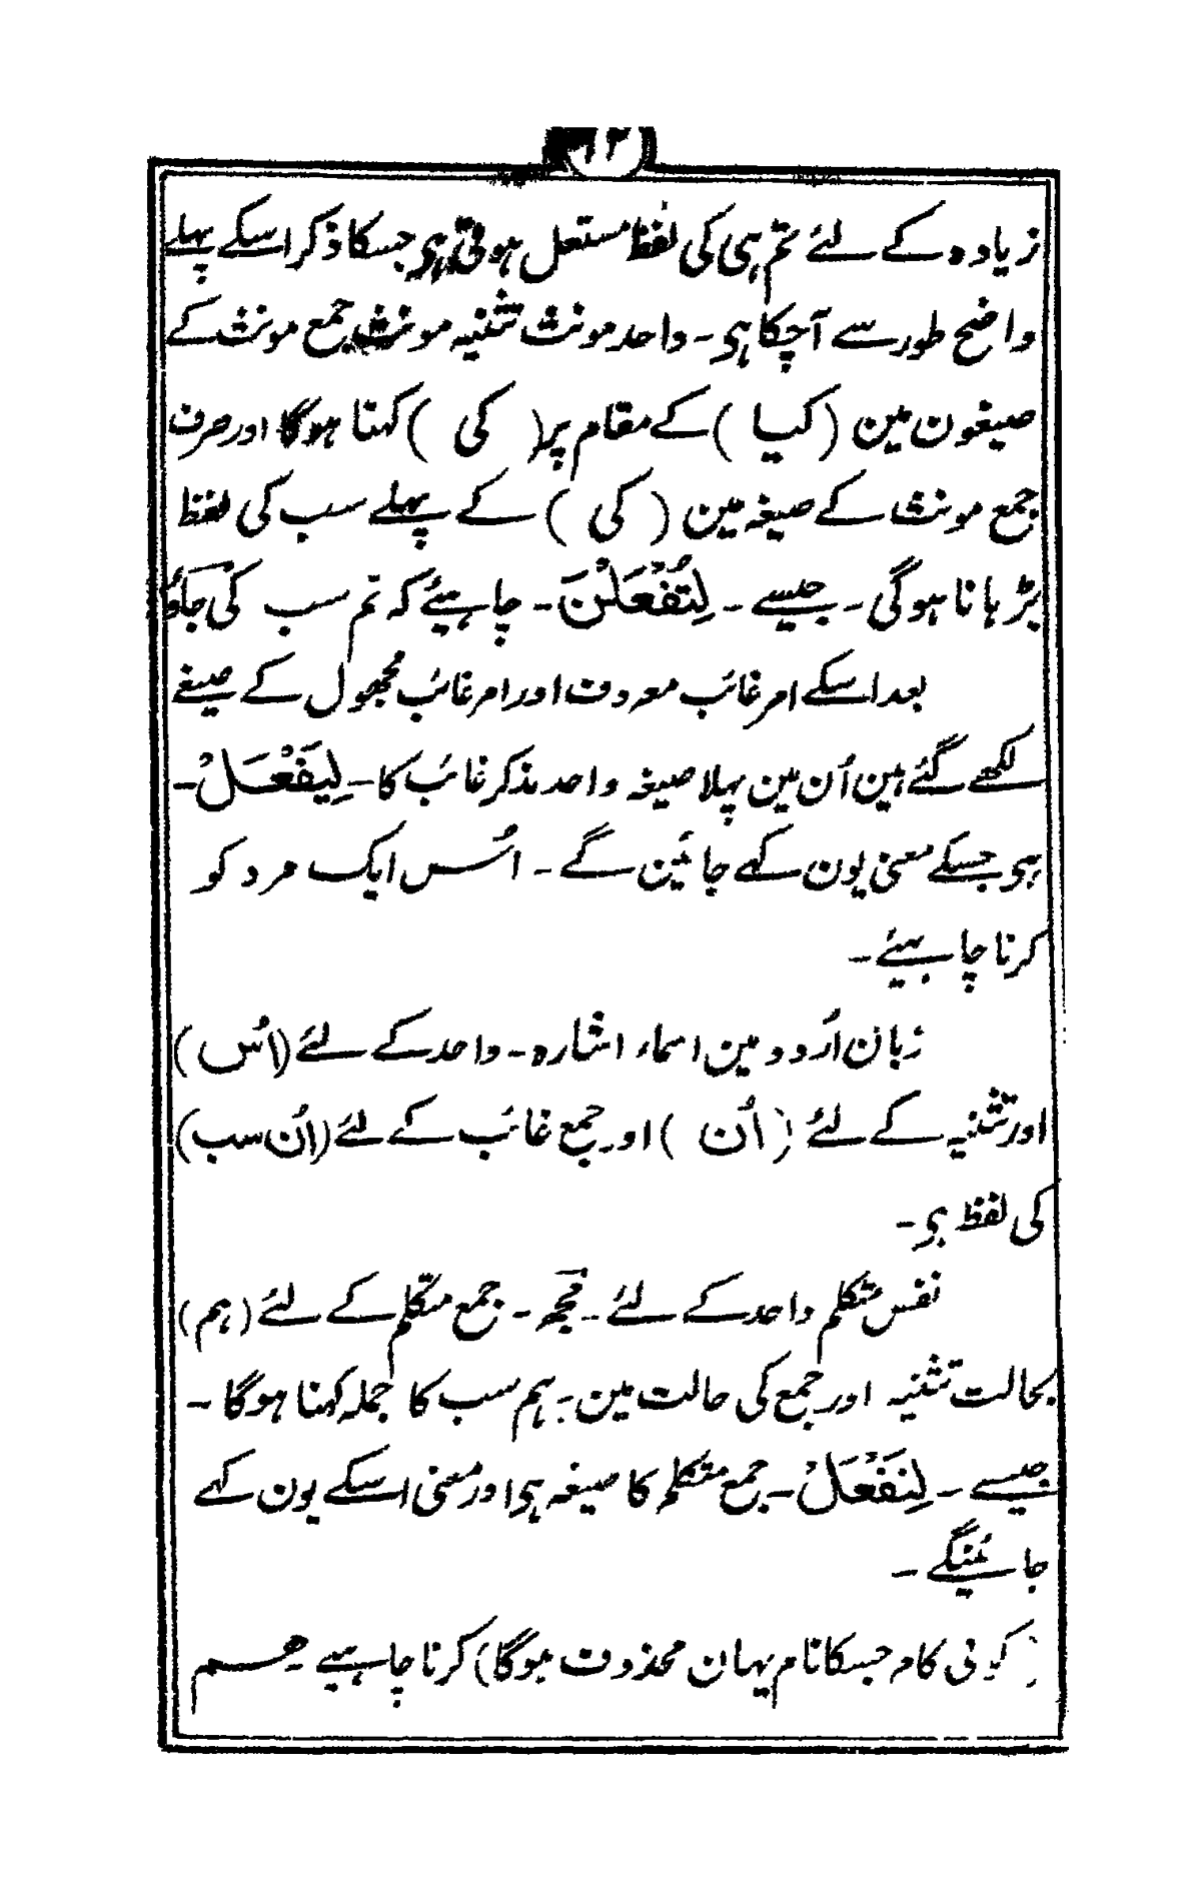 ۱۲
زیادہ کے لئے تم ہی کی لفظ مستعمل ہوتی ہی جسکا ذکر اسکے پہلے
واضح طور سے آچکا ہی ۔ واحد مونث تثنیہ مونث جمع مونث کے
صیغون مین (کیا) کے مقام پر (کی) کہنا ہوگا اور صرف
جمع مونث کے صیغہ مین (کی) کے پہلے سب کی لفظ
بڑہانا ہوگی ۔ جیسے ۔ لِتُفْعَلْنَ ۔ چاہیئے کہ تم سب کی جاؤ
بعد اسکے امر غائب معروف اور امر غائب مجھول کے صیغے
لکھے گئے ہین اُن مین پہلا صیغہ واحد مذکر غائب کا ۔ لِیَفْعَلْ ۔
ہی جسکے معنی یون کہے جائین گے ۔ اُس ایک مرد کو
کرنا چاہیئے ۔
زبان اُردو مین اسماء اشارہ ۔ واحد کے لئے (اُس)
اور تثنیہ کے لئے (اُن) اور جمع غائب کے لئے (اُن سب)
کی لفظ ہی ۔
نفس متکلم واحد کے لئے ۔ مجھ ۔ جمع متکلم کے لئے (ہم)
بحالت تثنیہ اور جمع کی حالت مین ۔ ہم سب کا جملہ کہنا ہوگا ۔
جیسے ۔ لِنَفْعَلْ ۔ جمع متکلم کا صیغہ ہی اور معنی اسکے یون کہے
جائینگے ۔
(کوئی کام جسکا نام یہان محذوف ہوگا) کرنا چاہیے ہم